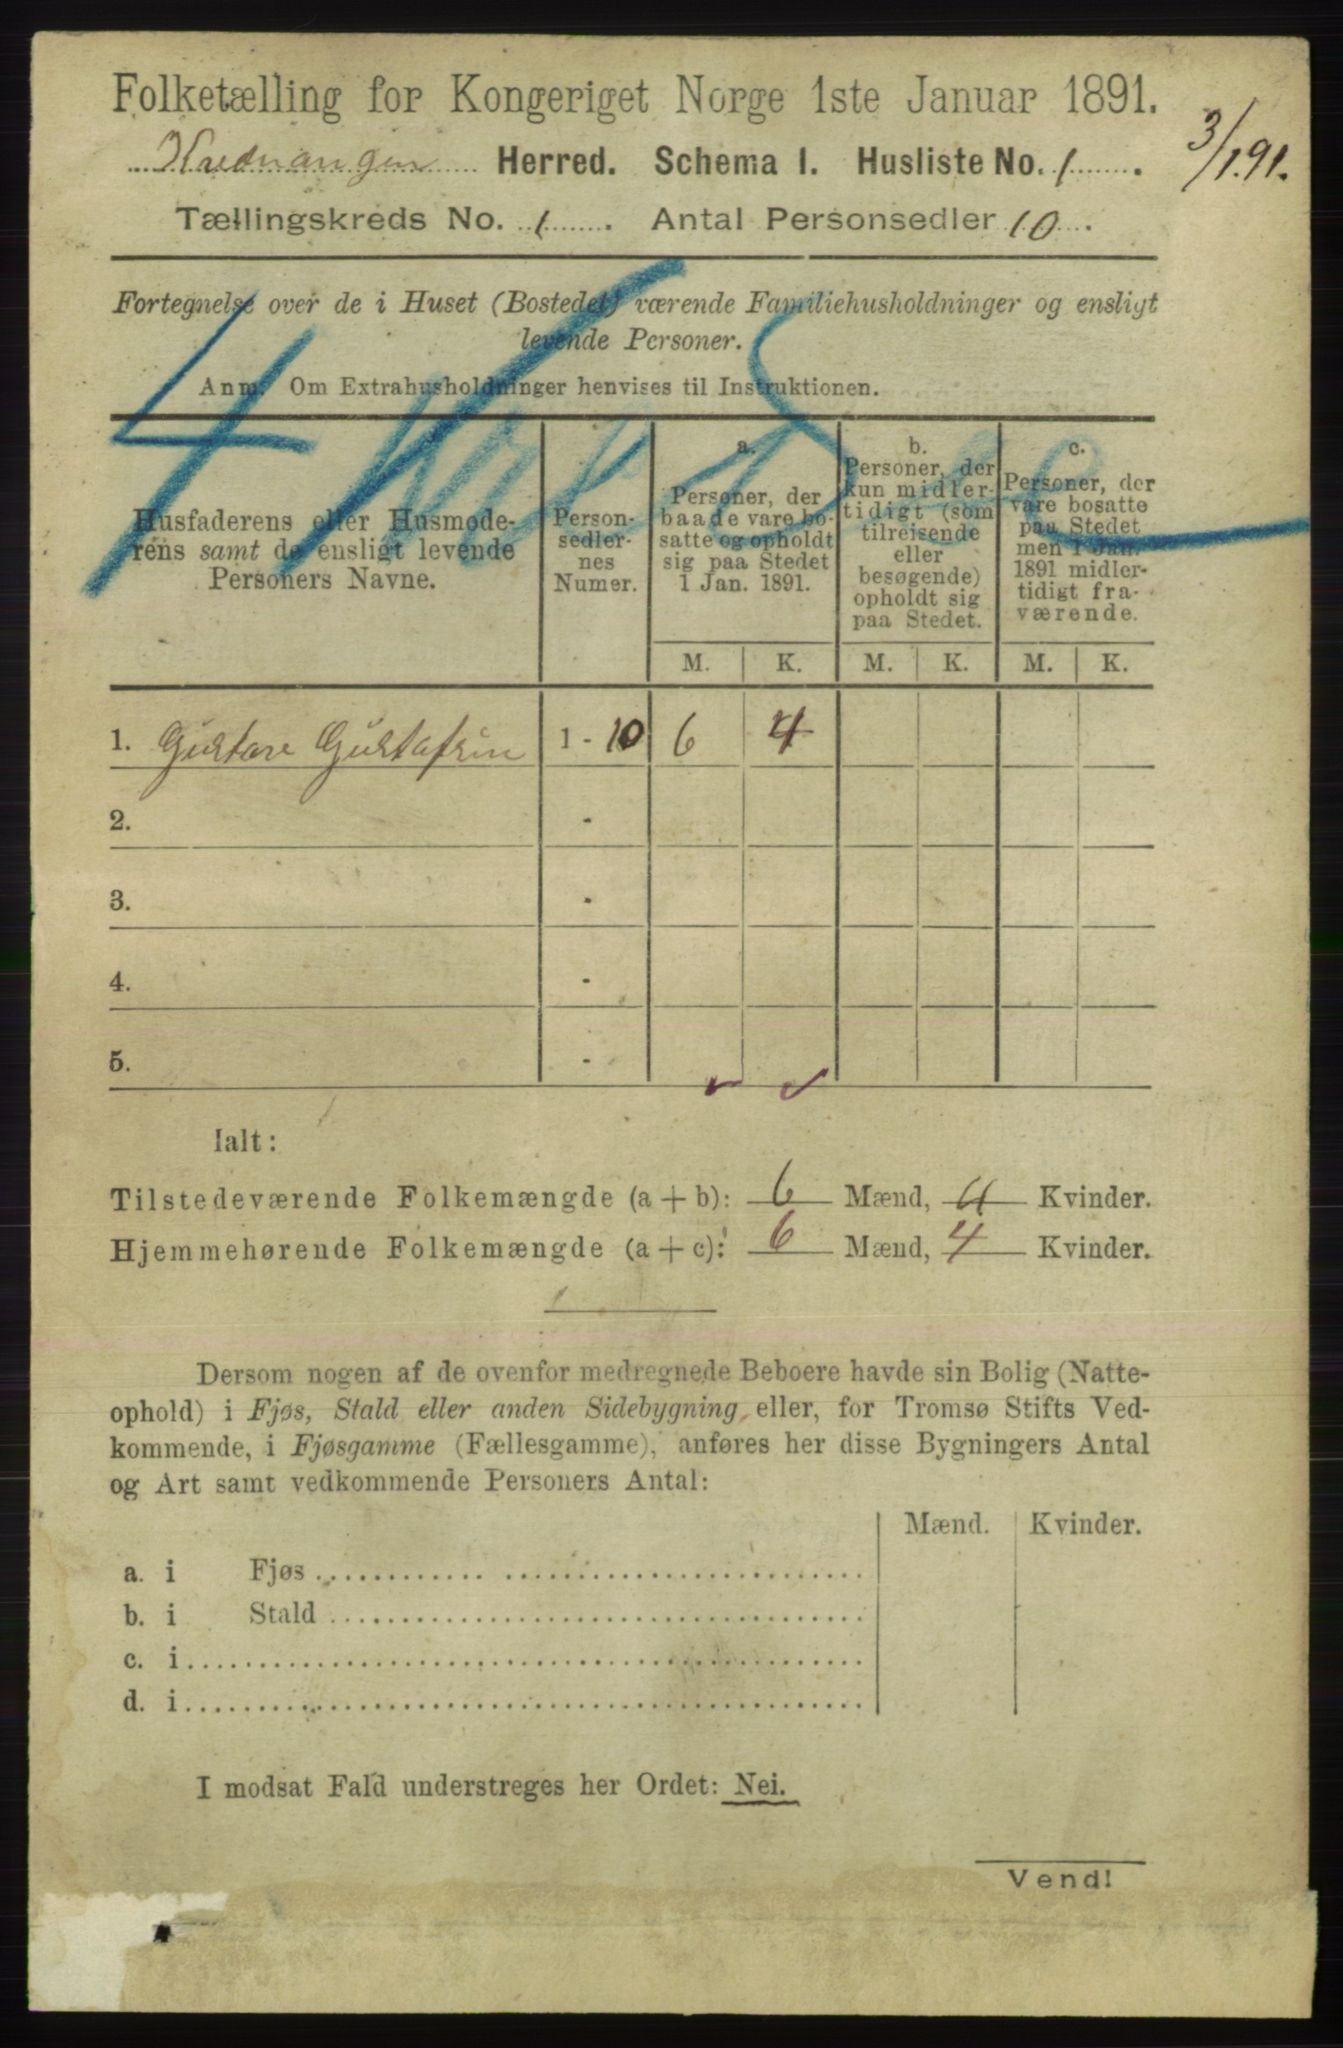 Folketælling for Kongeriget Norge 1ste Januar 1891.
3/1.91.
Kvednangen Herred. Schema 1. Husliste No. 1.
Tællingskreds No. 1. Antal Personsedler 10.
Fortegnelse over de i Huset (Bostedet) værende Familiehusholdninger og ensligt
levende Personer.
Anm. Om Extrahusholdninger henvises til Instruktionen.
Husfaderens eller Husmode-
rens samt de ensligt levende
Personers Navne.
Person-
sedler-
nes
Numer.
a.
Personer, der
baade vare bo-
satte og opholdt
sig paa Stedet
1 Jan. 1891.
b.
Personer, der
kun midler-
tidigt (som
tilreisende
eller
besøgende)
opholdt sig
paa Stedet.
c.
Personer, der
vare bosatte
paa Stedet
men 1 Jan.
1891 midler-
tidigt fra-
værende.
M. K. M. K. M. K.
1. Gustave Gustafsen 1 - 10 6 4
2. -
3. -
4. -
5. -
Ialt:
Tilstedeværende Folkemængde (a + b): 6 Mænd, 4 Kvinder.
Hjemmehørende Folkemængde (a + c): 6 Mænd, 4 Kvinder.
Dersom nogen af de ovenfor medregnede Beboere havde sin Bolig (Natte-
ophold) i Fjøs, Stald eller anden Sidebygning, eller, for Tromsø Stifts Ved-
kommende, i Fjøsgamme (Fællesgamme), anføres her disse Bygningers Antal
og Art samt vedkommende Personers Antal:
Mænd. Kvinder.
a. i Fjøs
b. i Stald
c. i
d. i
I modsat Fald understreges her Ordet: Nei.
Vend!